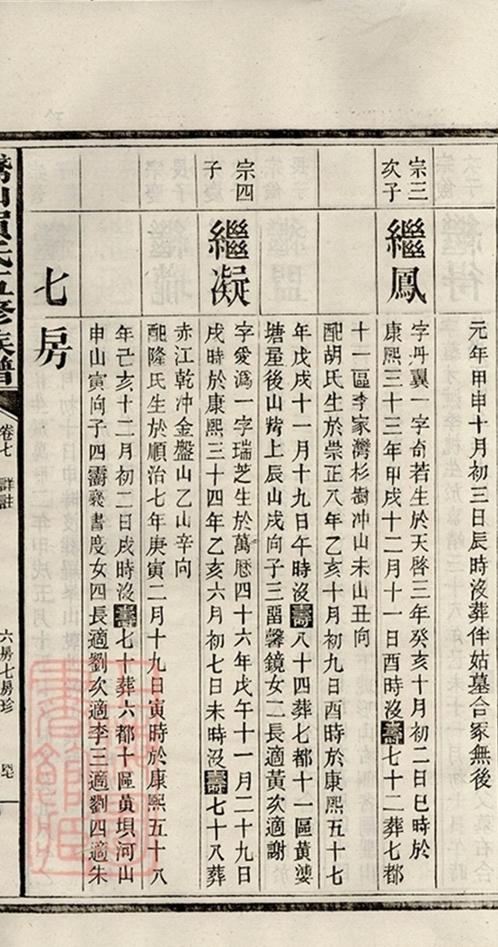 元年甲申十月初三日辰時沒葬伴姑墓合冢無後
宗三
次子
繼鳳
字丹翼一字奇若生於天啓三年癸亥十月初二日巳時於
康熙三十三年甲戌十二月十一日酉時沒壽七十二葬七都
十一區李家灣杉樹冲山未山丑向
配胡氏生於崇正八年乙亥十月初九日酉時於康熙五十七
年戊戌十一月十九日午時沒壽八十四葬七都十一區黃婆
塘屋後山嘴上辰山戌向子三 馨鏡女二長適黃次適謝
宗四
子
繼凝
字愛溈一字瑞芝生於萬厯四十六年戊午十一月二十九日
戌時於康熙三十四年乙亥六月初七日未時沒壽七十八葬
赤江乾冲金盤山乙山辛向
配隆氏生於順治七年庚寅二月十九日寅時於康熙五十八
年己亥十二月初二日戌時沒壽七十葬六都十區黃垻河山
申山寅向子四 書度女四長適劉次適李三適劉四適朱
七房
氏五修族譜
卷七
詳註
六房七房珍